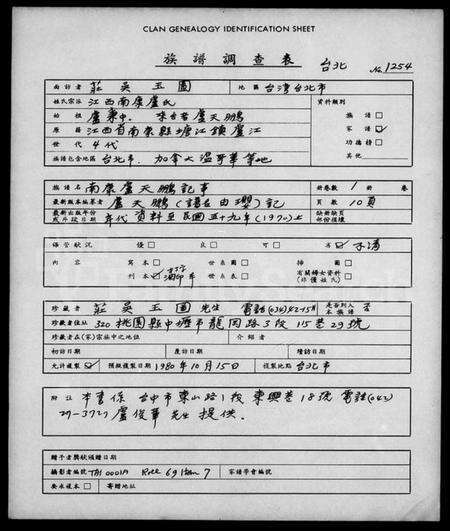 CLAN GENEALOGY IDENTIFICATION SHEET
族譜調查表 台北 No. 1254
面訪者 莊吳玉圖 地區 台灣台北市
姓氏宗派 江西南康盧氏 資料類別
始祖 盧東中. 來台者盧天鵬 族譜 □
原籍 江西省南康縣塘江鎮盧江 家譜 ☑
世代 4代 功德榜 □
族譜包含地區 台北市. 加拿大溫哥華等地 其他
族譜名 南康盧天鵬記事 冊卷數 1 冊卷
最新版本編著 盧天鵬 頁數 10頁
最新出版年份或片段日期 年代資料至民國五十九年(1970)止 缺冊缺頁部份註標
保管狀況 優 □ 良 □ 可 □ 劣 ☑
內容 寫本 □ 世系圖 □ 插圖 □
刊本 ☑ 世系表 □ 有關婦女資料(非僅姓氏) □
珍藏者 莊吳玉圖先生 電話 是否列入本族譜 否
珍藏者住址 320桃園縣中壢市龍岡路3段15巷29號
珍藏者在(家)宗族中之地位 介紹者
初訪日期 產訪日期 續訪日期
允許複製 ☑ 預擬複製日期 1980年10月15日 複製地點 台北市
附註 本書係 台中市東山路1段東興巷18號 電話(042)
29-3727 盧俊華先生提供.
贈予者獎狀頒贈日期
攝影者編號 TAI 0001A Roll 69 Item 7 家譜學會編號
要求複本 □ 寄贈地址